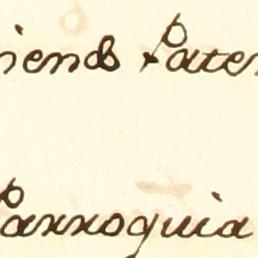 iendo Paten
Parroquia